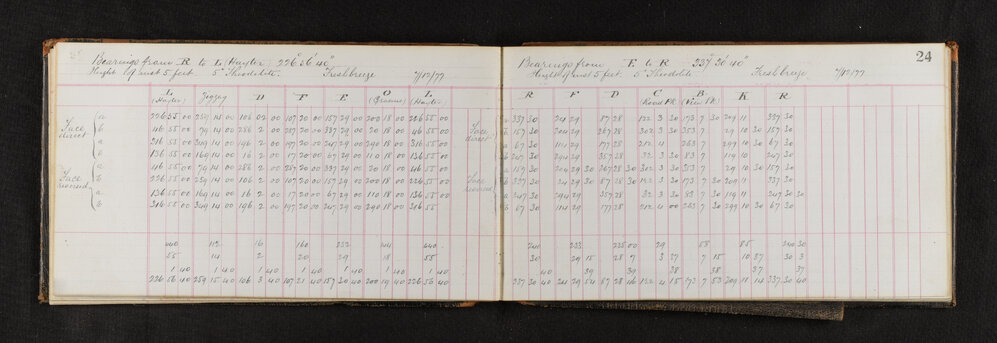 Bearings from R to L (Hayter) 226° 56' 40"
Height of inst 5 feet. 5" Theodolite. Fresh breeze 7/12/77
L Zigzag D F E O L
(Hayter) (Hayter)
Face direct
a 226 55 00 259 14 00 106 02 00 107 20 00 157 29 00 200 18 00 226 55 00
b 46 55 00 79 14 00 286 2 00 287 20 00 337 29 00 20 18 00 46 55 00
a 316 55 00 349 14 00 196 2 00 197 20 00 247 29 00 290 18 00 316 55 00
b 136 55 00 169 14 00 16 2 00 17 20 00 67 29 00 110 18 00 136 55 00
Face reversed
a 46 55 00 79 14 00 286 2 00 287 20 00 337 29 00 20 18 00 46 55 00
b 226 55 00 259 14 00 106 2 00 107 20 00 157 29 00 200 18 00 226 55 00
a 136 55 00 169 14 00 16 2 00 17 20 00 67 29 00 110 18 00 136 55 00
b 316 55 00 349 14 00 196 2 00 197 20 00 247 29 00 290 18 00 316 55
440 112 16 160 232 144 440
55 14 2 20 29 18 55
1 40 1 40 1 40 1 40 1 40 1 40 1 40
226 56 40 259 15 40 106 3 40 107 21 40 157 30 40 200 19 40 226 56 40
24
Bearings from E to R 337° 30' 40"
Height of inst 5 feet. 5" Theodolite Fresh breeze 7/12/77
R F D C B K R
(Road Pk) (View Pk)
Face direct
a 337 30 24 29 87 28 122 3 30 173 7 30 209 11 337 30
b 157 30 204 29 267 28 302 3 30 353 7 29 10 30 157 30
a 67 30 114 29 177 28 212 4 263 7 299 10 30 67 30
b 247 30 294 29 357 28 32 3 30 83 7 119 10 247 30
Face reversed
a 157 30 204 29 30 267 28 30 302 3 30 353 7 29 10 30 157 30
b 337 30 24 29 30 87 28 30 122 3 30 173 7 30 209 11 337 30
a 247 30 294 29 357 28 32 3 30 83 7 30 119 11 247 30 30
b 67 30 114 29 177 28 212 4 00 263 7 30 299 10 30 67 30
240 233 225 00 29 58 85 240 30
30 29 15 28 7 3 37 7 15 10 37 30 3
40 39 39 38 38 37 37
337 30 40 24 29 54 87 28 46 122 4 15 173 7 53 209 11 14 337 30 40